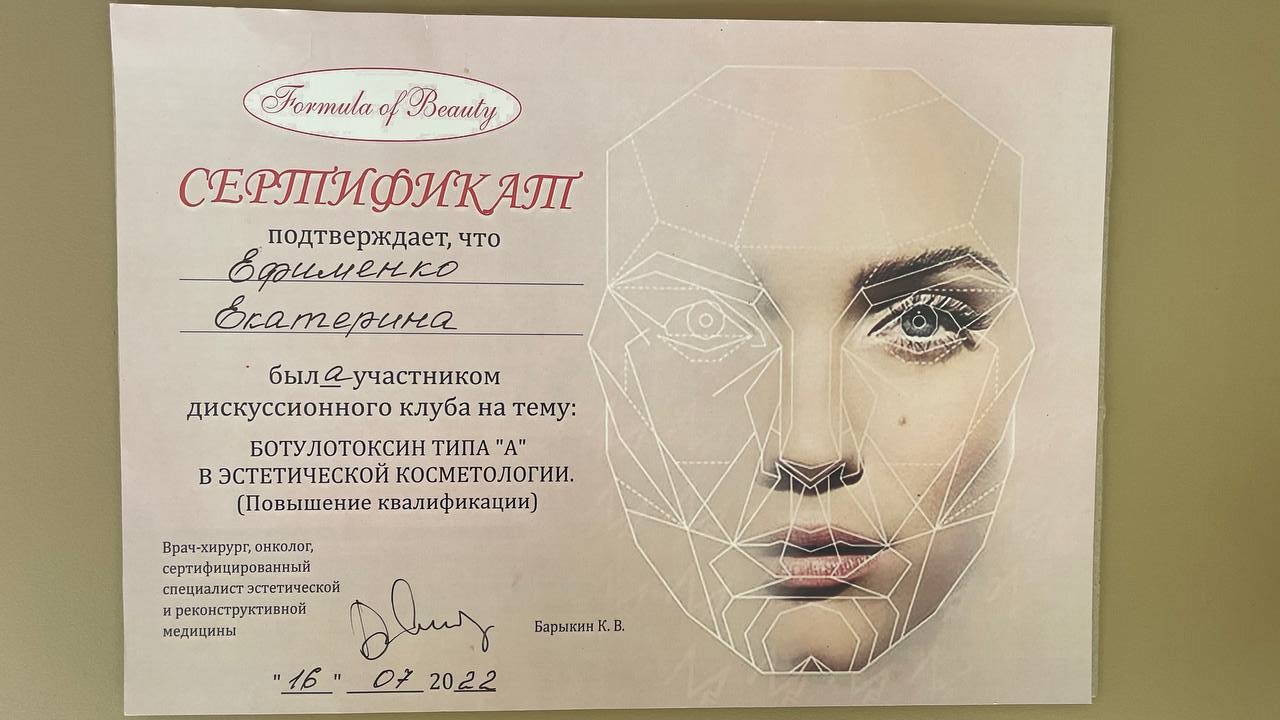 Formula of Beauty
СЕРТИФИКАТ
подтверждает, что
Ефименко
Екатерина
была участником
дискуссионного клуба на тему:
БОТУЛОТОКСИН ТИПА "А"
В ЭСТЕТИЧЕСКОЙ КОСМЕТОЛОГИИ.
(Повышение квалификации)
Врач-хирург, онколог,
сертифицированный
специалист эстетической
и реконструктивной
медицины
Барыкин К. В.
"16" 07 2022